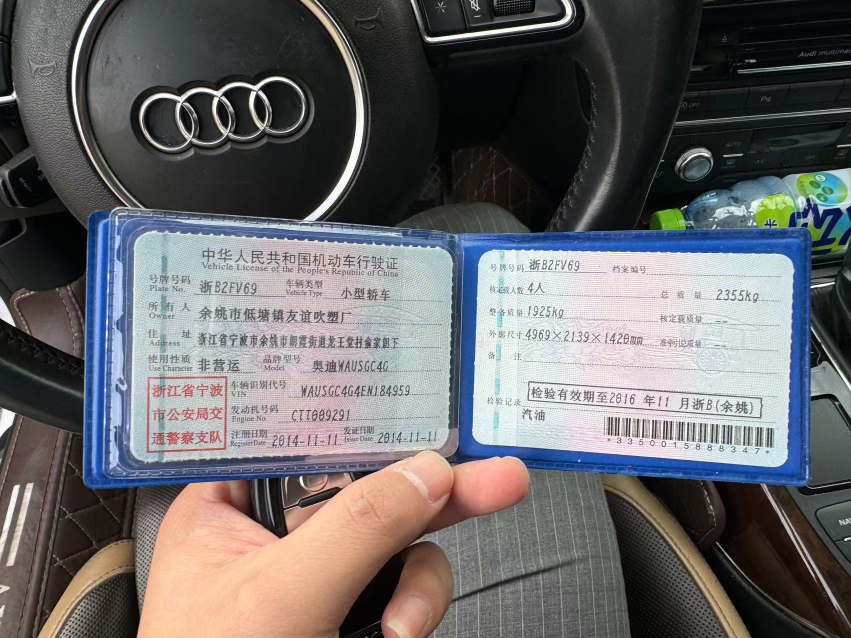 中华人民共和国机动车行驶证
Vehicle License of the People's Republic of China
号牌号码 浙B2FV69 车辆类型 小型轿车
Plate No. Vehicle Type
所有人 余姚市低塘镇友谊吹塑厂
Owner
住址 浙江省宁波市余姚市朗霞街道龙王堂村俞家朗下
Address
使用性质 非营运 品牌型号 奥迪WAUSGC4G
Use Character Model
浙江省宁波
市公安局交
通警察支队
车辆识别代号 WAUSGC4G4EN184959
VIN
发动机号码 CTT009291
Engine No.
注册日期 2014-11-11 发证日期 2014-11-11
Register Date Issue Date
号牌号码 浙B2FV69 档案编号
核定载人数 4人 总质量 2355kg
整备质量 1925kg 核定载质量 --
外廓尺寸 4969×2139×1420mm 准牵引总质量 --
备注
检验记录 检验有效期至2016年11月浙B(余姚)
汽油
*3350015886347*
Audi multimedia